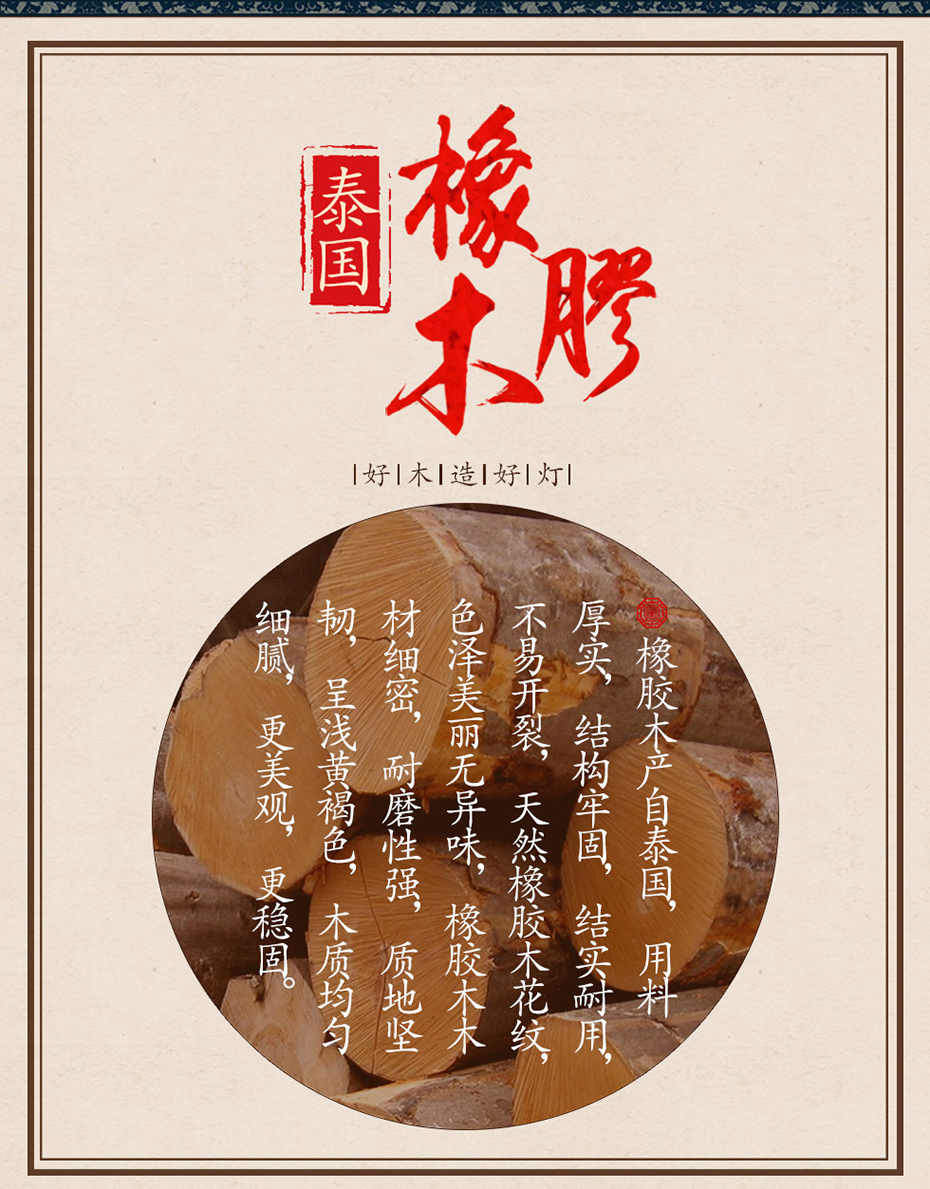 泰国
橡膠木
|好|木|造|好|灯|
橡胶木产自泰国，用料
厚实，结构牢固，结实耐用，
不易开裂，天然橡胶木花纹，
色泽美丽无异味，橡胶木木
材细密，耐磨性强，质地坚
韧，呈浅黄褐色，木质均匀
细腻，更美观，更稳固。